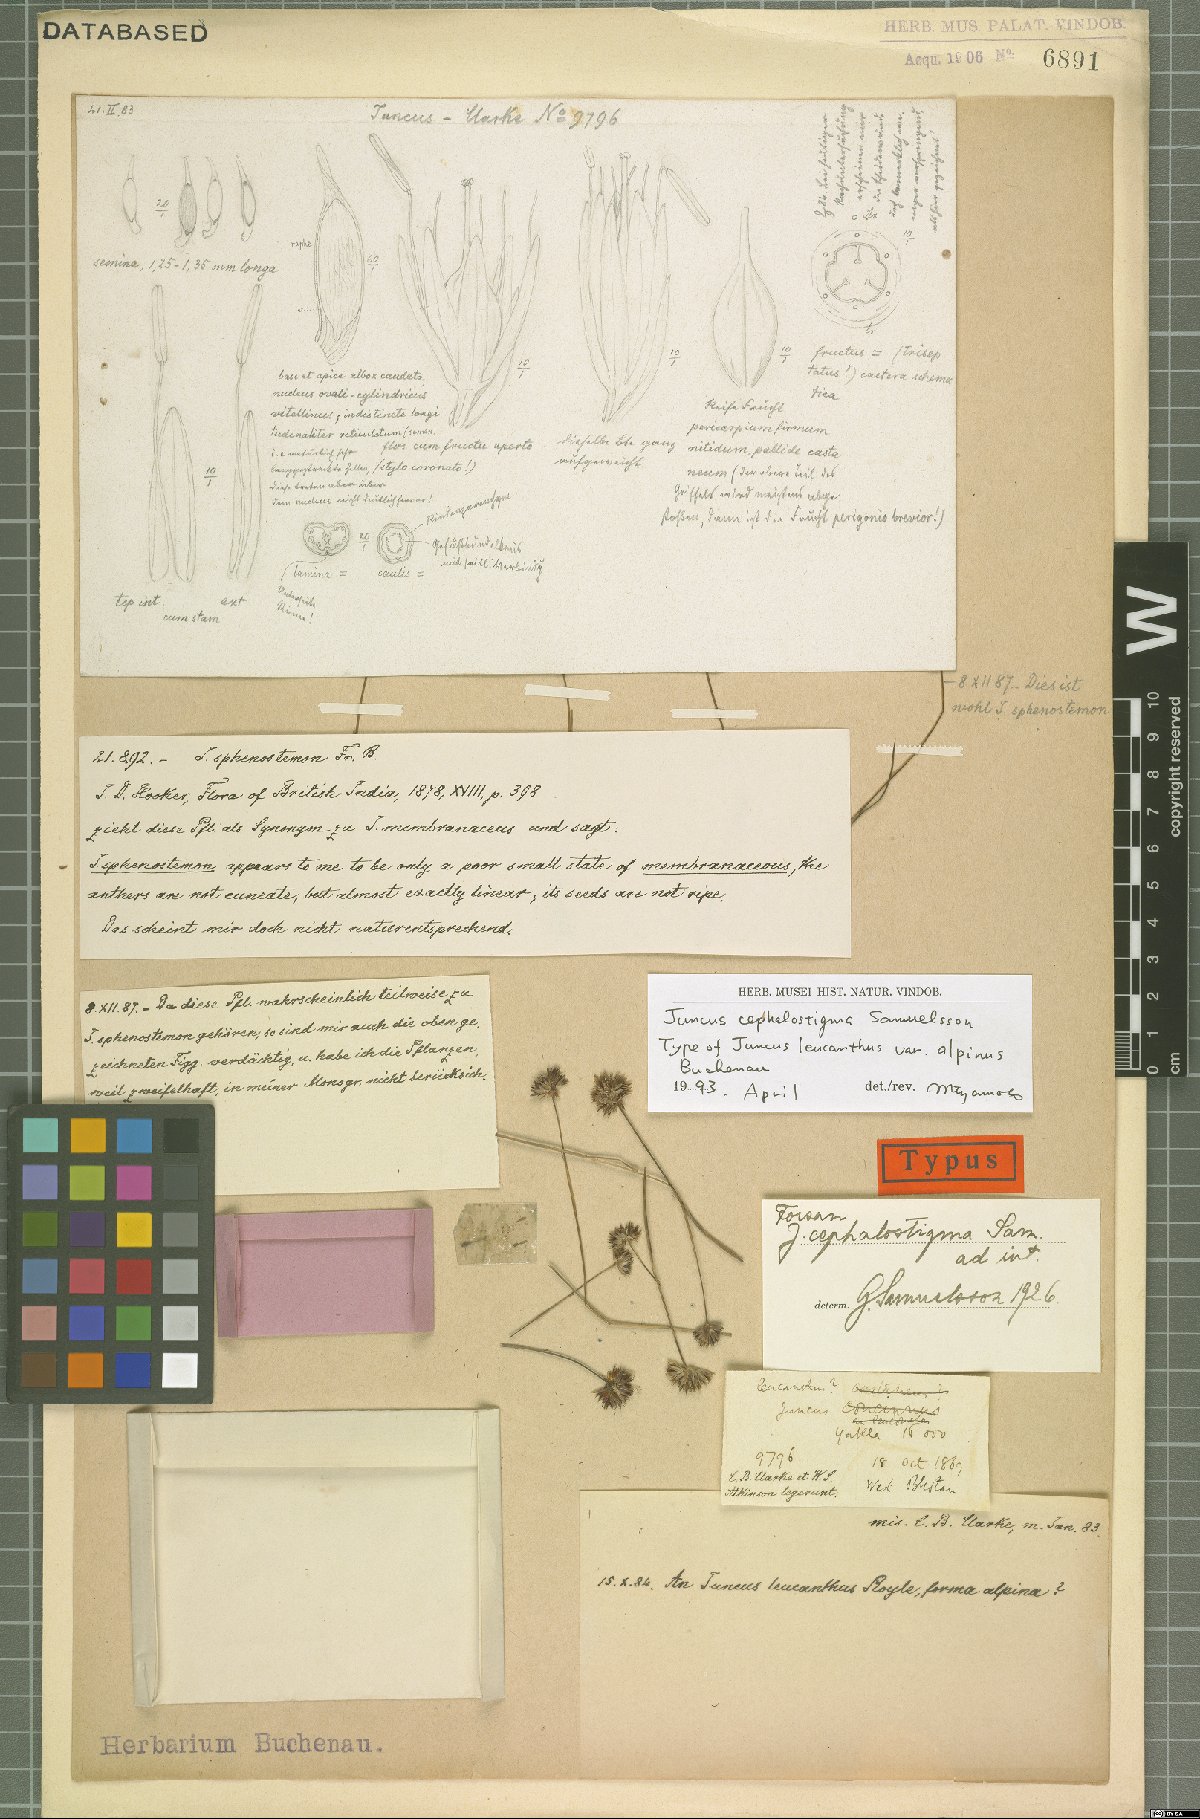 DATABASED
HERB. MUS. PALAT. VINDOB.
Acqu. 1906 No. 6891
21.II.83
Juncus – Clarke No 9796
semina, 1,25–1,35 mm longa
20/1
raphe
60/1
10/1
10/1
10/1
10/1
basi et apice albo caudata
nucleus ovali-cylindricus
vitellinus, indistincte longi
tudinaliter reticulatum
flos cum fructu aperto
(stylo coronato!)
dieselbe
aufgeweicht
Reife Frucht
pericarpium firmum
nitidum pallide casta
neum (der obere Teil des
Griffels wird meistens abge
stoßen, dann ist die Frucht perigonio brevior!)
fructus = (trisep
tatus!) caetera schema
tica
20/1
lamina =
caulis =
tep int. ext
cum stam
8 XII 87 – Dies ist
wohl J. sphenostemon
21.8.92. – J. sphenostemon Fr. B
J. D. Hooker, Flora of British India, 1878, XVIII, p. 398
zieht diese Pfl. als Synonym zu J. membranaceus und sagt:
J. sphenostemon appears to me to be only a poor small state of membranaceous, the
anthers are not cuneate, but almost exactly linear, its seeds are not ripe.
Das scheint mir doch nicht naturentsprechend.
8.XII.87. – Da diese Pfl. wahrscheinlich teilweise zu
J. sphenostemon gehören, so sind mir auch die oben ge-
zeichneten Figg. verdächtig, u. habe ich die Pflanzen,
weil zweifelhaft, in meiner Monogr. nicht berücksich.
HERB. MUSEI HIST. NATUR. VINDOB.
Juncus cephalostigma Samuelsson
Type of Juncus leucanthus var. alpinus
Buchenau
1993. April det./rev. Miyamoto
Typus
Forsan
J. cephalostigma Sam.
ad int.
determ. G. Samuelsson 1926
leucanthus?
Juncus concinnus
Yakla 16 000
9796 18 Oct 1869
C. B. Clarke et W. S.
Atkinson legerunt.
West Bhotan
mis. C. B. Clarke, m. Jan. 83.
15.X.84. An Juncus leucanthus Royle, forma alpina?
Herbarium Buchenau.
W
10
9
8
7
6
5
4
3
2
1
0
cm
copyright reserved